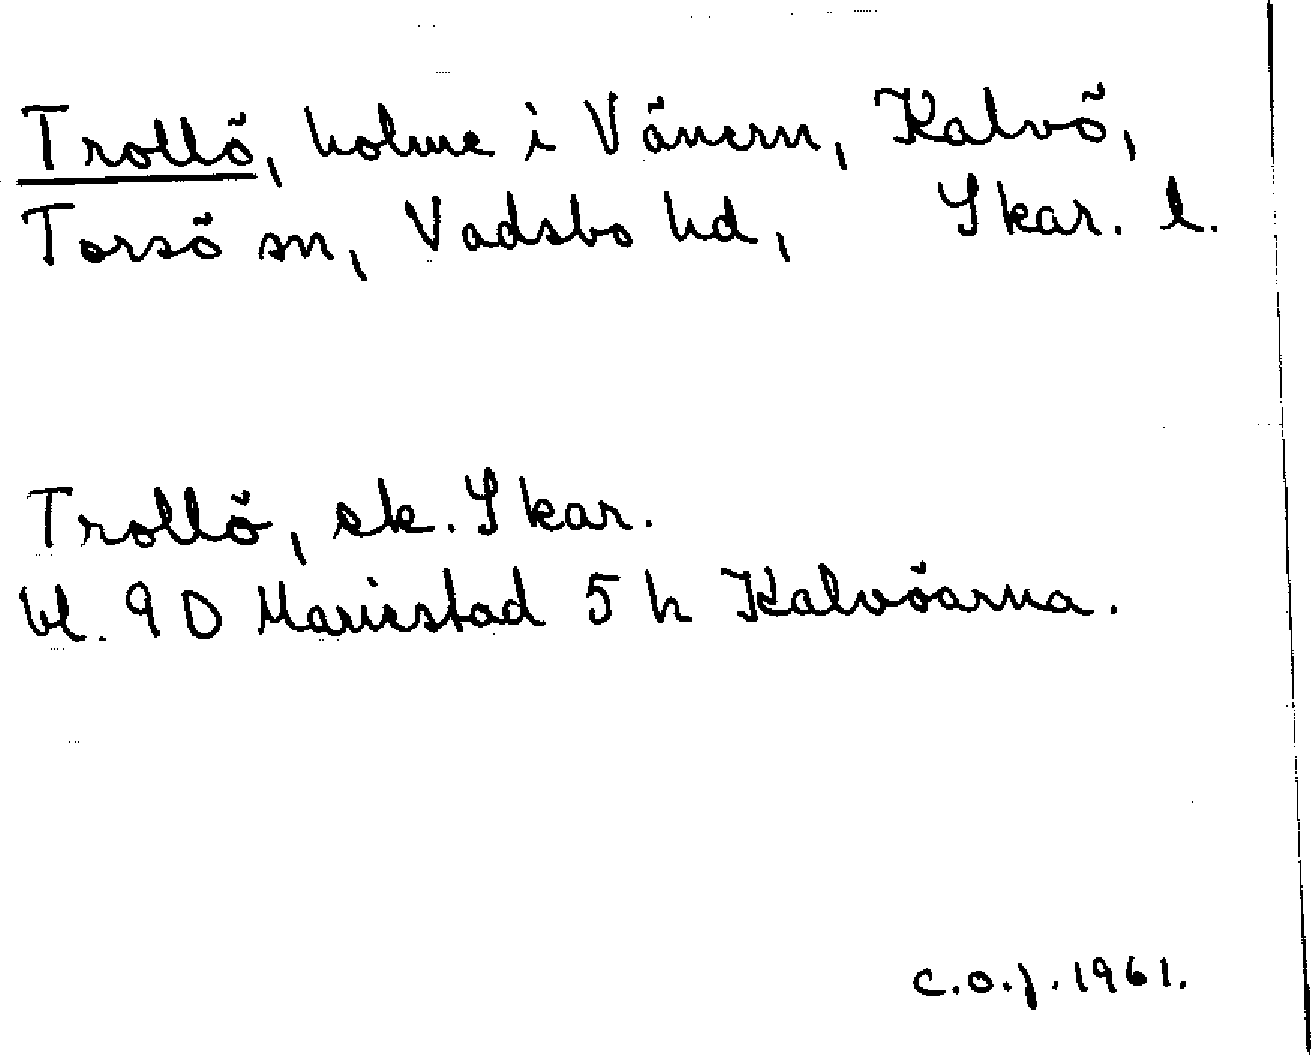 Trollö, holme i Vänern, Kalvö,
Torsö sn, Vadsbo hd, Skar. l.
Trollö, ek. Skar.
bl. 9 D Mariestad 5 h Kalvöarna.
C.O.J. 1961.